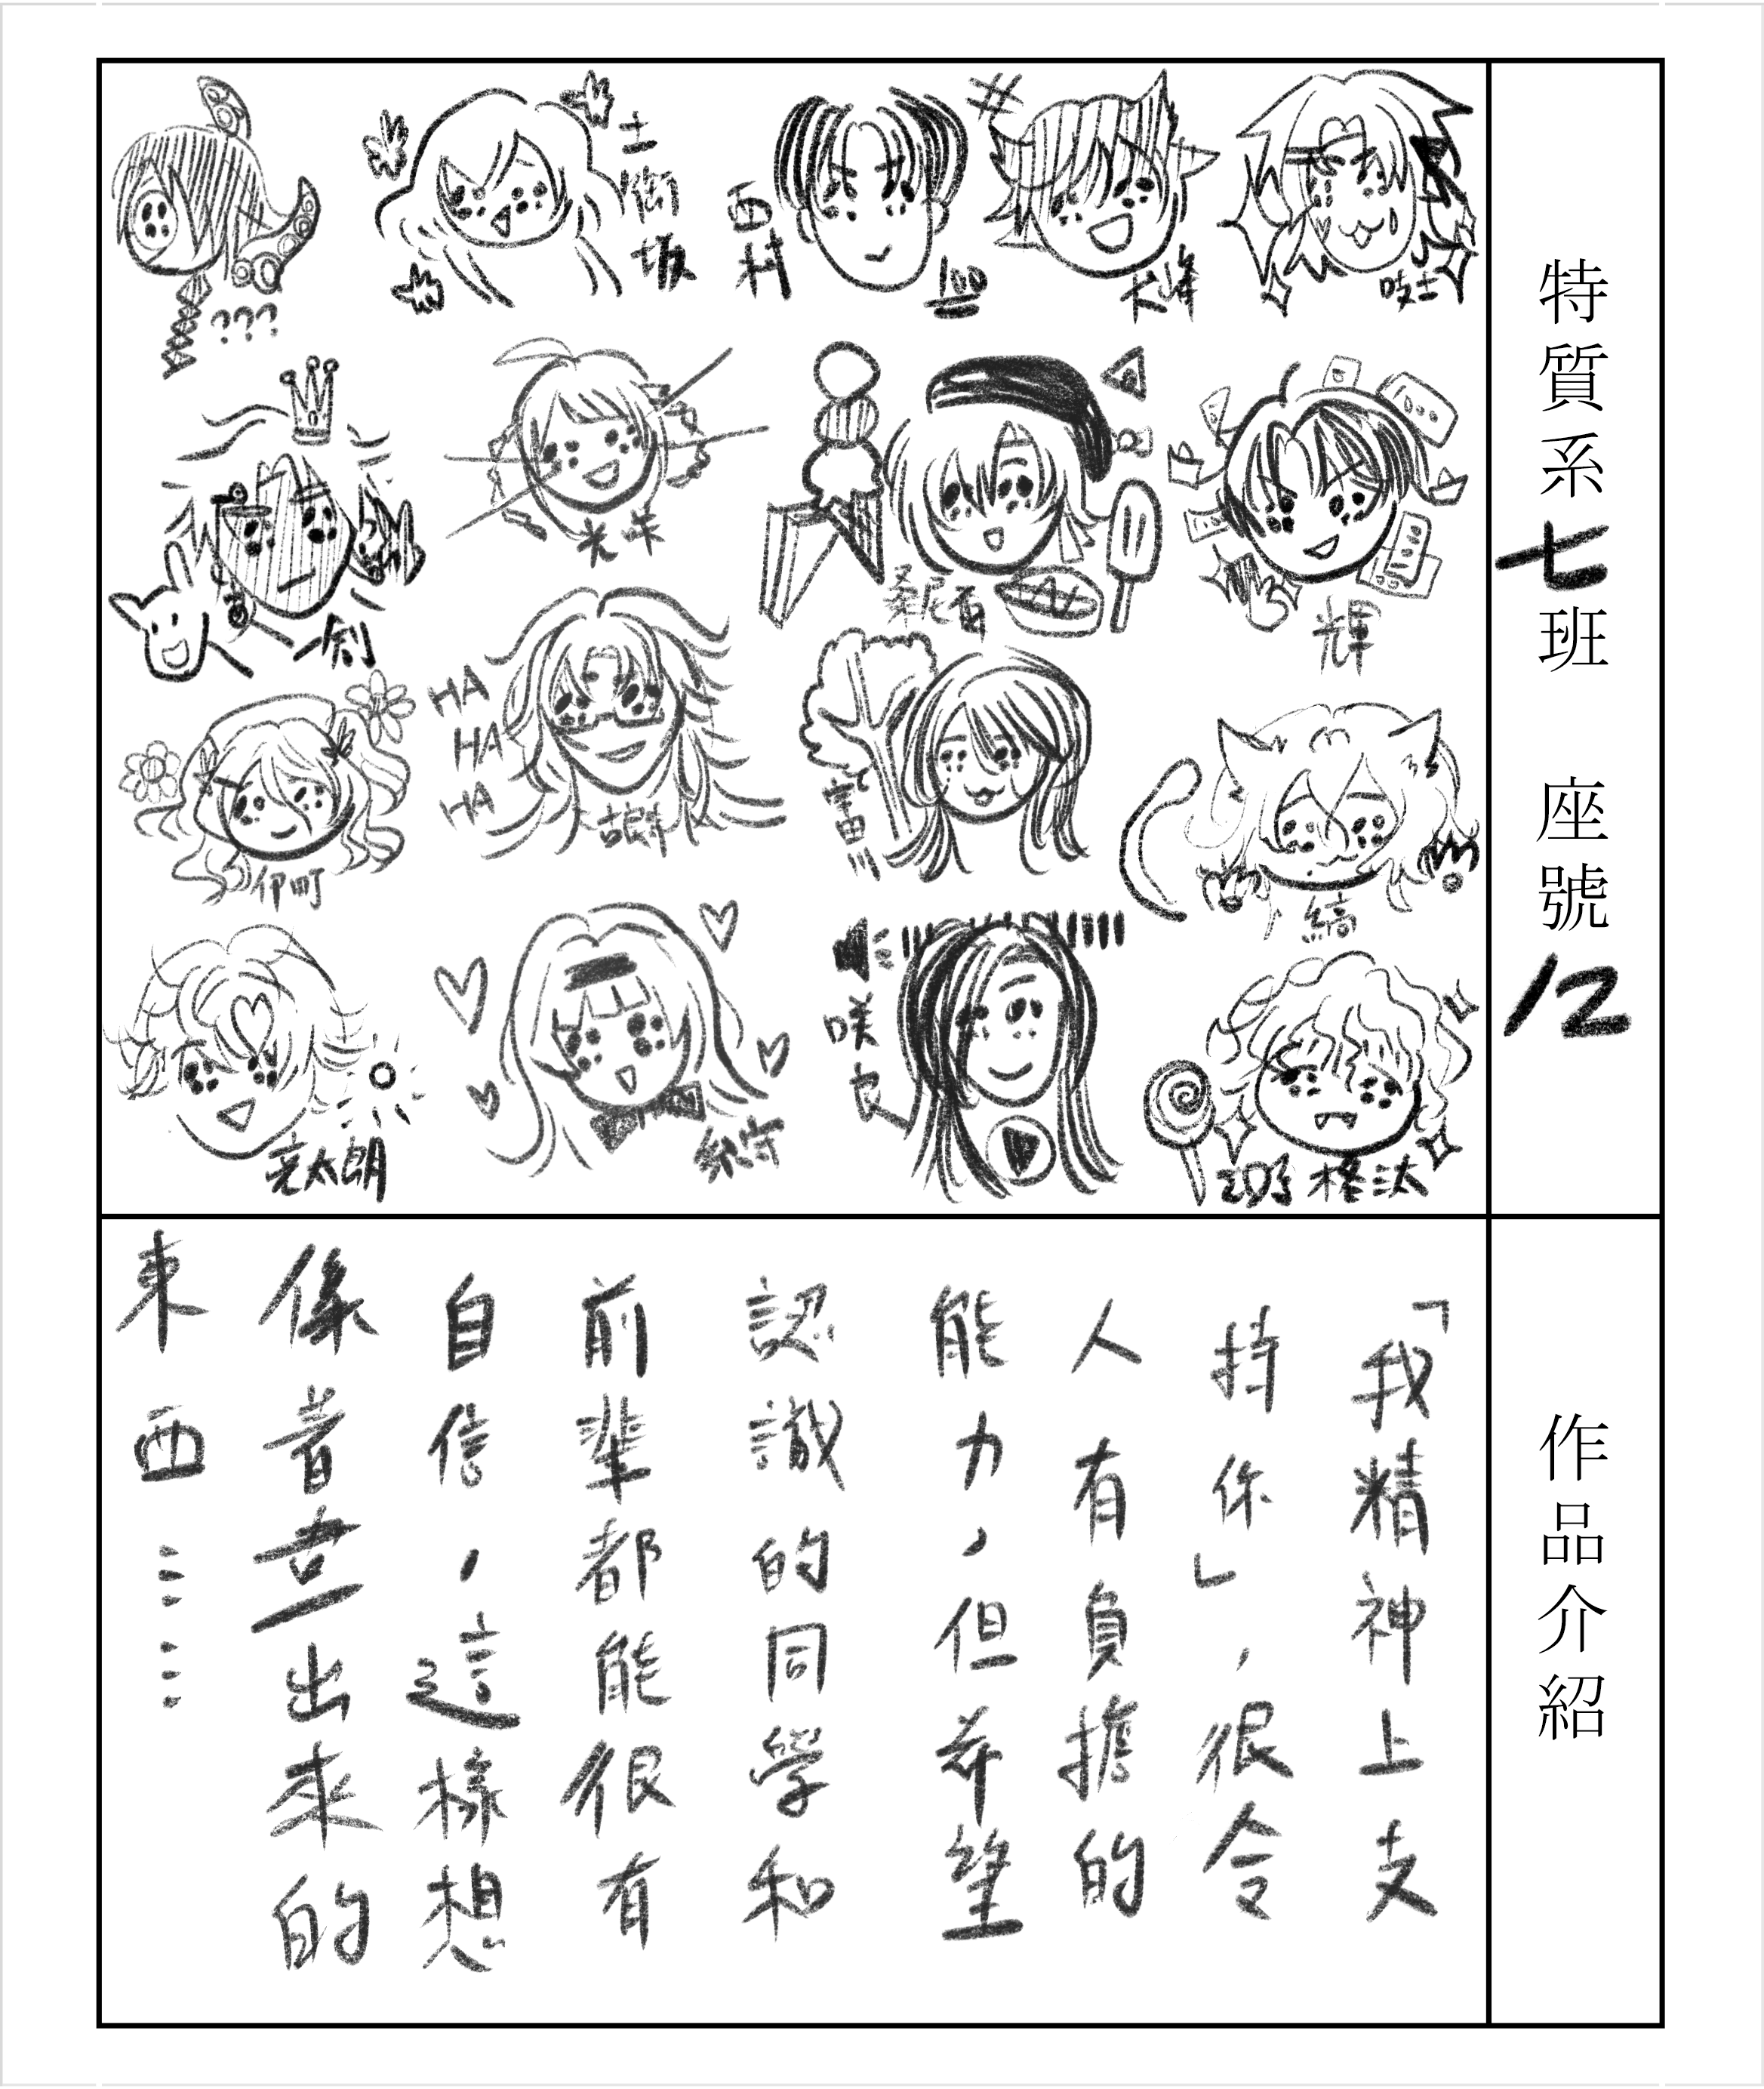 特質系七班 座號12
吱士
大峰
100
西村
土御坂
???
輝
桑尼百
光年
一創
縞
富田川
HA
HA
HA
伊町
格汰
咲良
紗守
亮太朗
作品介紹
「我精神上支
持你」，很令
人有負擔的
能力，但希望
認識的同學和
前輩都能很有
自信，這樣想
係著畫出來的
東西……